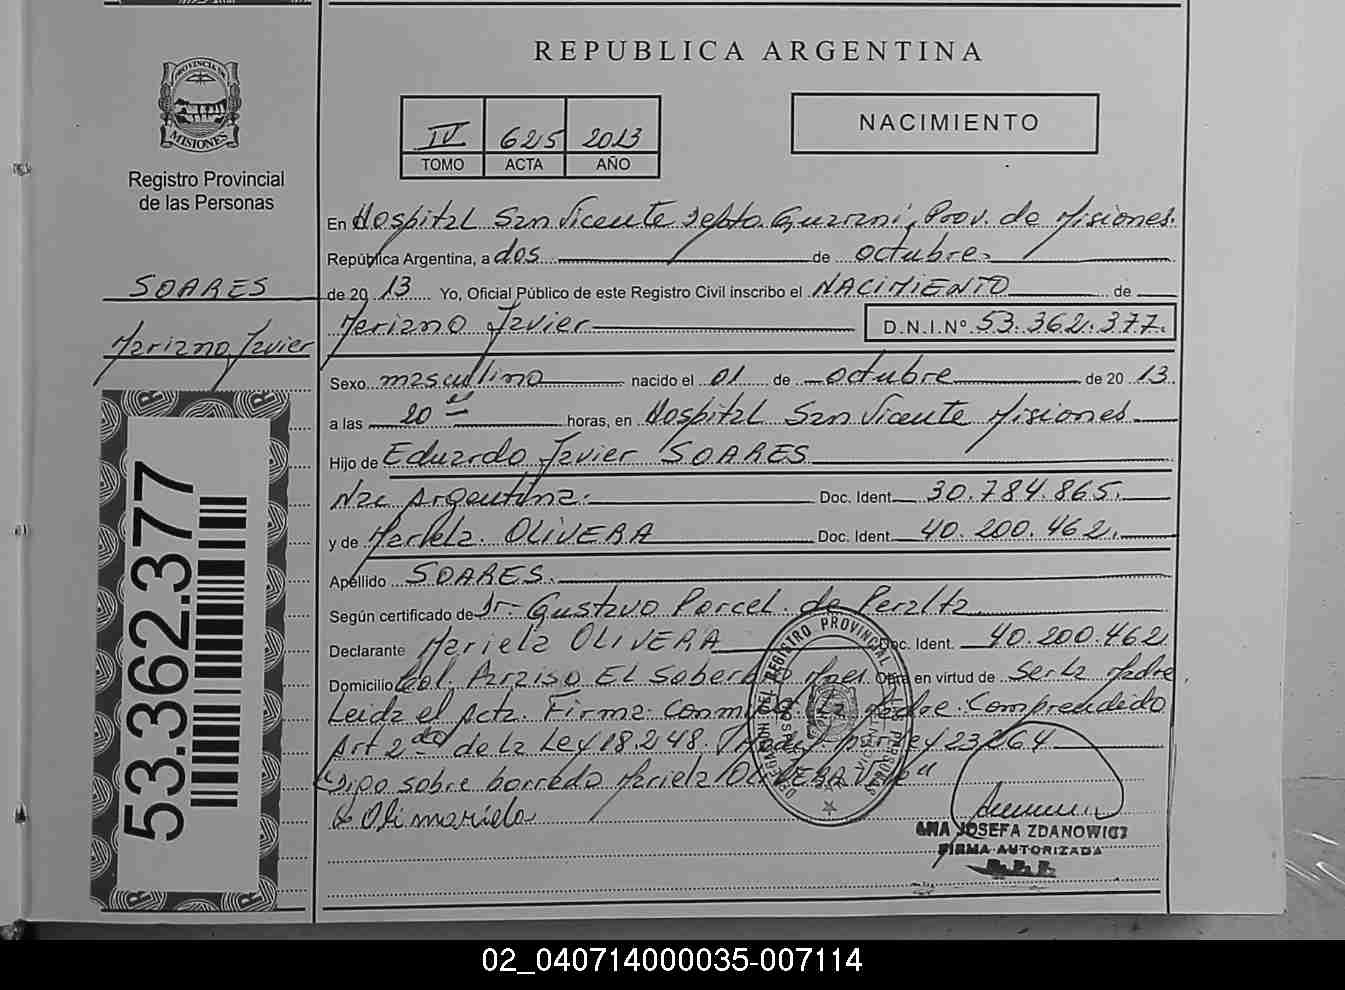 REPUBLICA ARGENTINA
PROVINCIA DE
MISIONES
Registro Provincial
de las Personas
IV 625 2013
TOMO ACTA AÑO
NACIMIENTO
SOARES
Mariano Javier
53.362.377
En Hospital San Vicente Depto. Guarani, Prov. de Misiones.
República Argentina, a dos de octubre
de 20 13 Yo, Oficial Público de este Registro Civil inscribo el NACIMIENTO de
Mariano Javier D.N.I.Nº 53.362.377.
Sexo masculino nacido el 01 de octubre de 20 13
a las 20 horas, en Hospital San Vicente Misiones
Hijo de Eduardo Javier SOARES
Nac Argentina. Doc. Ident. 30.784.865.
y de Mariela OLIVERA Doc. Ident. 40.200.462.
Apellido SOARES.
Según certificado de Dr. Gustavo Porcel de Peralta
Declarante Mariela OLIVERA Doc. Ident. 40.200.462
Domicilio Col. Paraiso El Soberbio Mnes. Obra en virtud de ser la Madre
Leida el Acta. Firma Conmigo La Madre. Comprendido
Art 2do de la Ley 18.248.
Digo sobre borrado Mariela OLIVERA Vale"
ANA JOSEFA ZDANOWICZ
FIRMA AUTORIZADA
R.P.P.
02_040714000035-007114